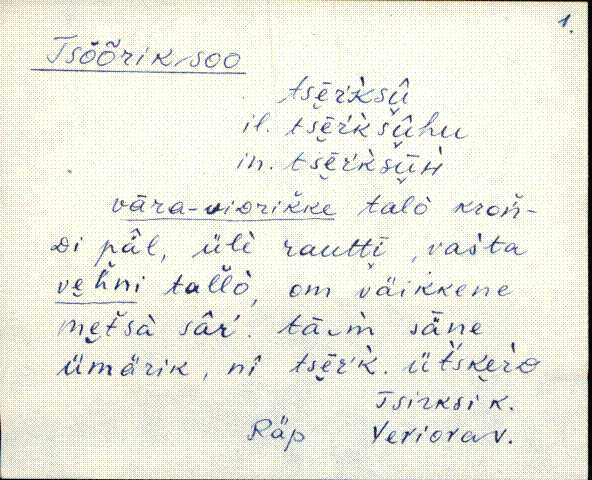 1.
Tsõõrik/soo
tsē̮ŕk̀sû̬
il. tsē̮ŕk̀sû̬hu
in. tsē̮ŕk̀sū̬ǹ
vāra-viorikke talò kroń-
di pâl, ülè rauttī̮, vašta
ve̮hńi tallò, om väikkene
me̮tsà sâŕ. tā‿m̀ säne
ümärik, nî tsē̮ŕk̀. ütskèrd
Tsirksi k.
Räp Veriora v.